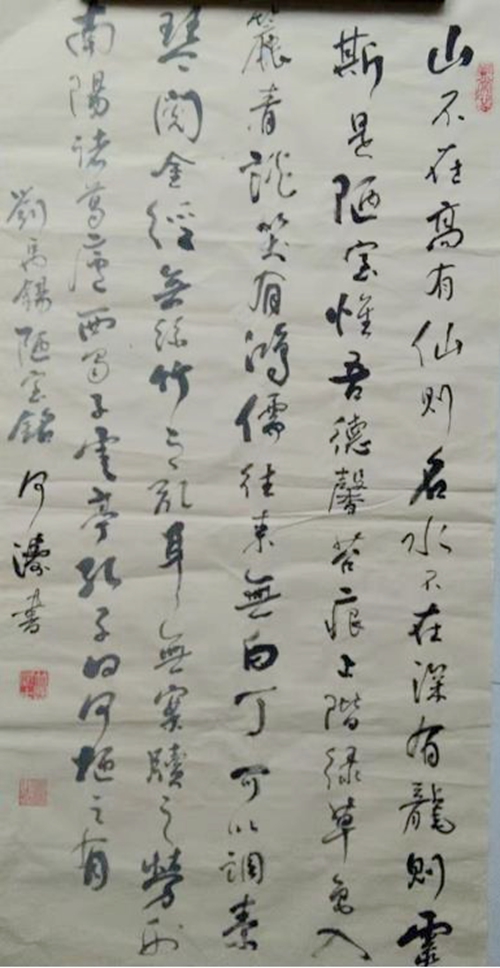 山不在高有仙则名水不在深有龍则靈
斯是陋室惟吾德馨苔痕上階緑草色入
簾青談笑有鴻儒往来無白丁可以調素
琴閲金經無絲竹之亂耳無案牘之勞形
南陽諸葛廬西蜀子雲亭孔子曰何陋之有
劉禹錫陋室銘 何濤書